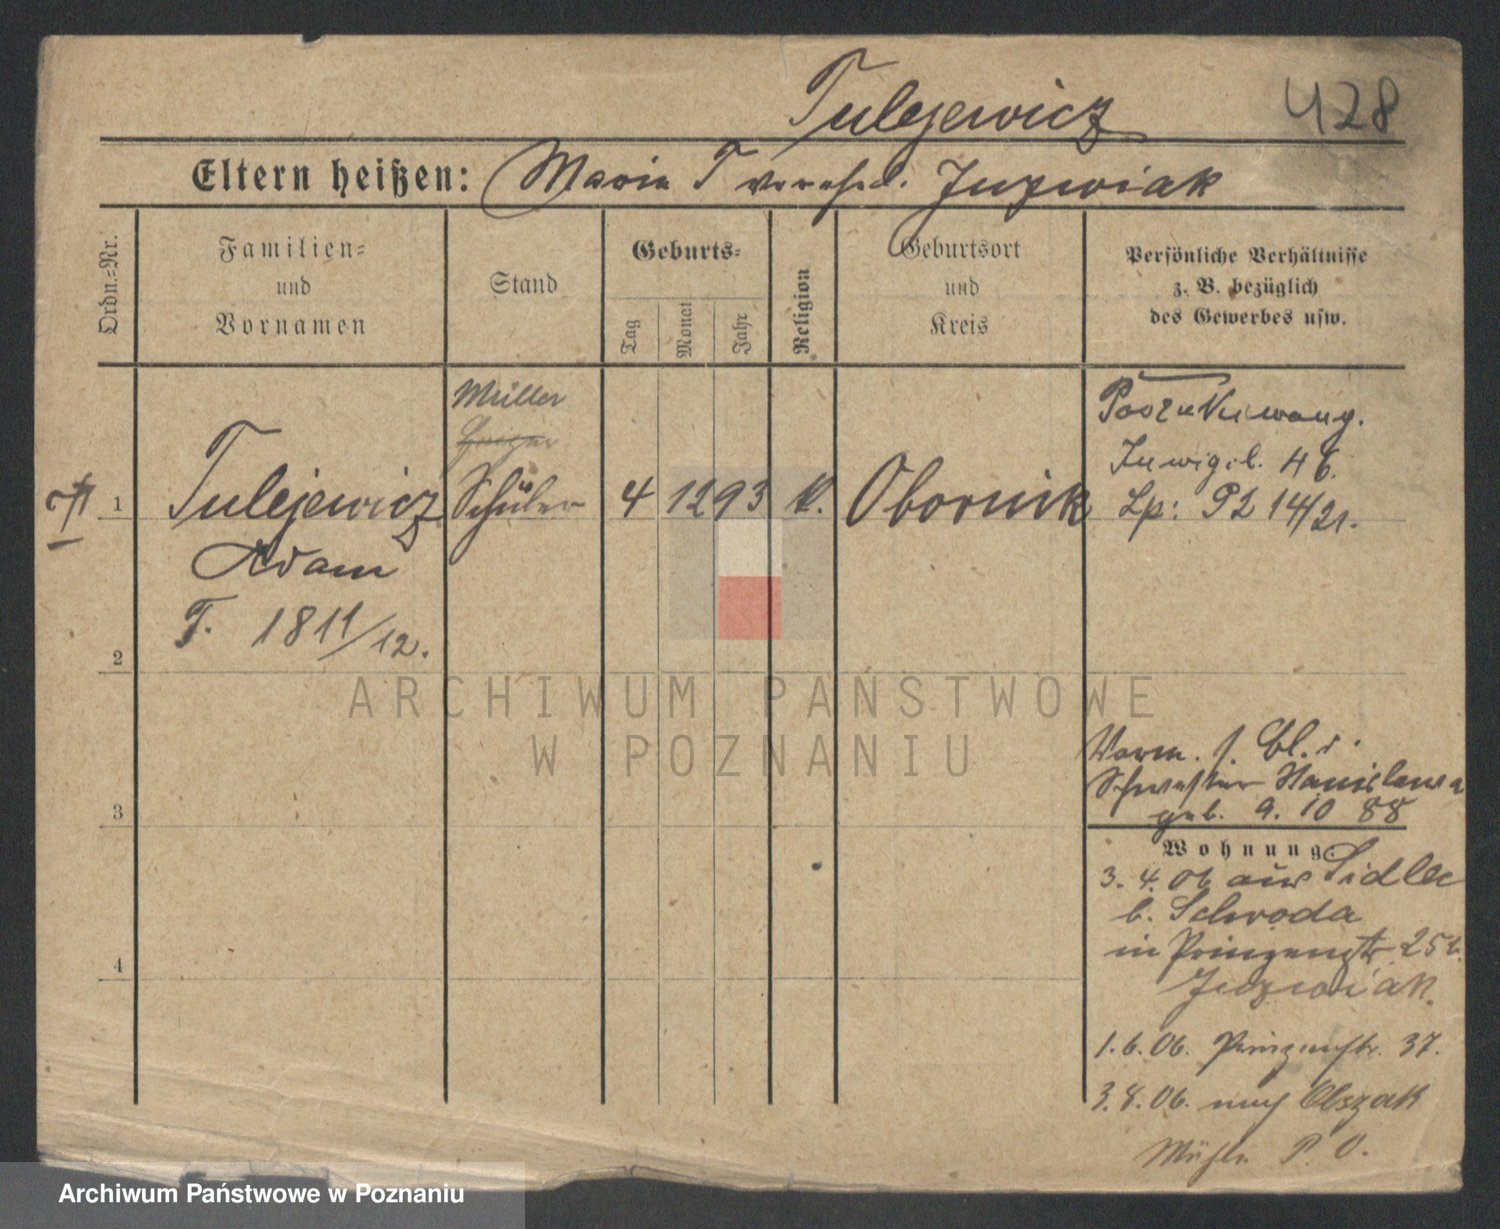 Tulejewicz
428
Eltern heißen: Maria T verehel. Juzwiak
Ordn.-Nr.
Familien-
und
Vornamen
Stand
Geburts-
Tag
Monat
Jahr
Religion
Geburtsort
und
Kreis
Persönliche Verhältnisse
z. B. bezüglich
des Gewerbes usw.
1
Tulejewicz
Adam
T. 1811/12.
Müller
Schüler
4 12 93 k.
Obornik
Lp: P2 14/21.
2
3
4
Vorm. s. Bl. d.
Schwester Stanislawa
geb. 9. 10 88
Wohnung:
3. 4. 06 aus Sidlec
b. Schroda
in Prinzenstr. 25b.
Juzwiak.
1. 6. 06. Prinzenstr. 37.
3. 8. 06. nach
Mühle P. O.
ARCHIWUM PAŃSTWOWE
W POZNANIU
Archiwum Państwowe w Poznaniu